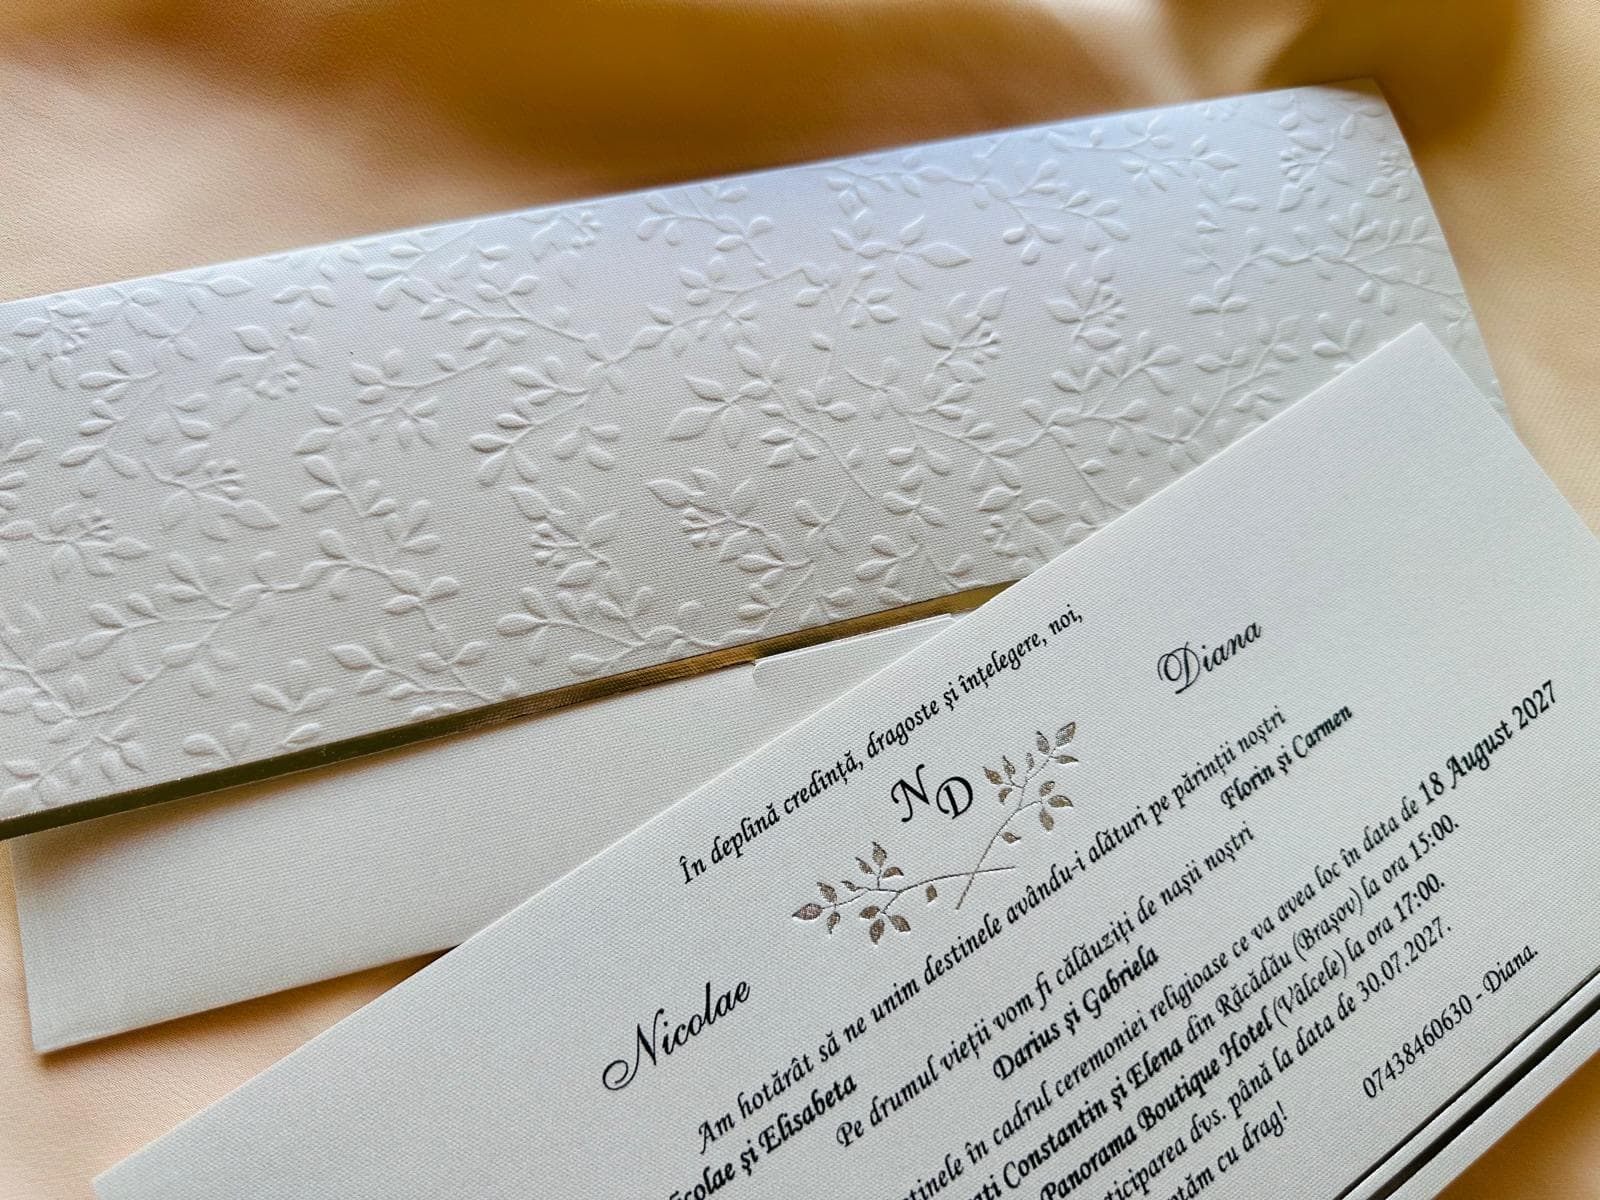 În deplină credință, dragoste și înțelegere, noi,
Nicolae
ND
Diana
Am hotărât să ne unim destinele avându-i alături pe părinții noștri
și Elisabeta
Florin și Carmen
Pe drumul vieții vom fi călăuziți de nașii noștri
Darius și Gabriela
în cadrul ceremoniei religioase ce va avea loc în data de 18 August 2027
Constantin și Elena din Răcădău (Brașov) la ora 15:00.
Panorama Boutique Hotel (Vâlcele) la ora 17:00.
dvs. până la data de 30.07.2027.
cu drag!
07438460630 - Diana.